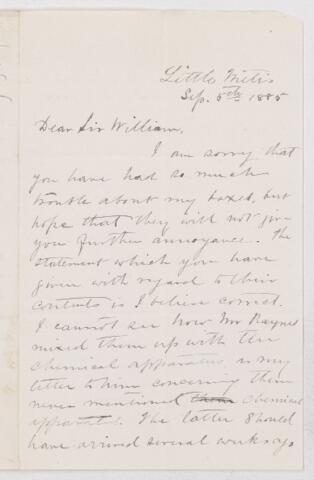 Little Metis
Sep. 5th 1885
Dear Sir William,
I am sorry that
you have had so much
trouble about my boxes, but
hope that they will not give
you further annoyance. The
statement which you have
given with regard to their
contents is I believe correct.
I cannot see how Mr Bayne
mixed them up with the
chemical apparatus, as my
letter to him concerning them
never mentioned them chemical
apparatus. The latter should
have arrived several weeks ago